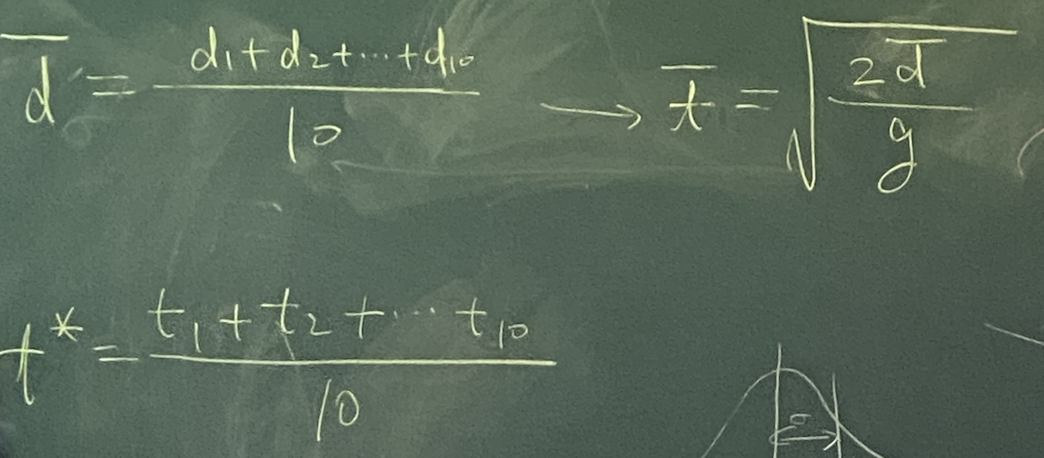 d̅ = (d₁+d₂+···+d₁₀)/10 → t̅ = √(2d̅/g)
t* = (t₁+t₂+···t₁₀)/10
σ